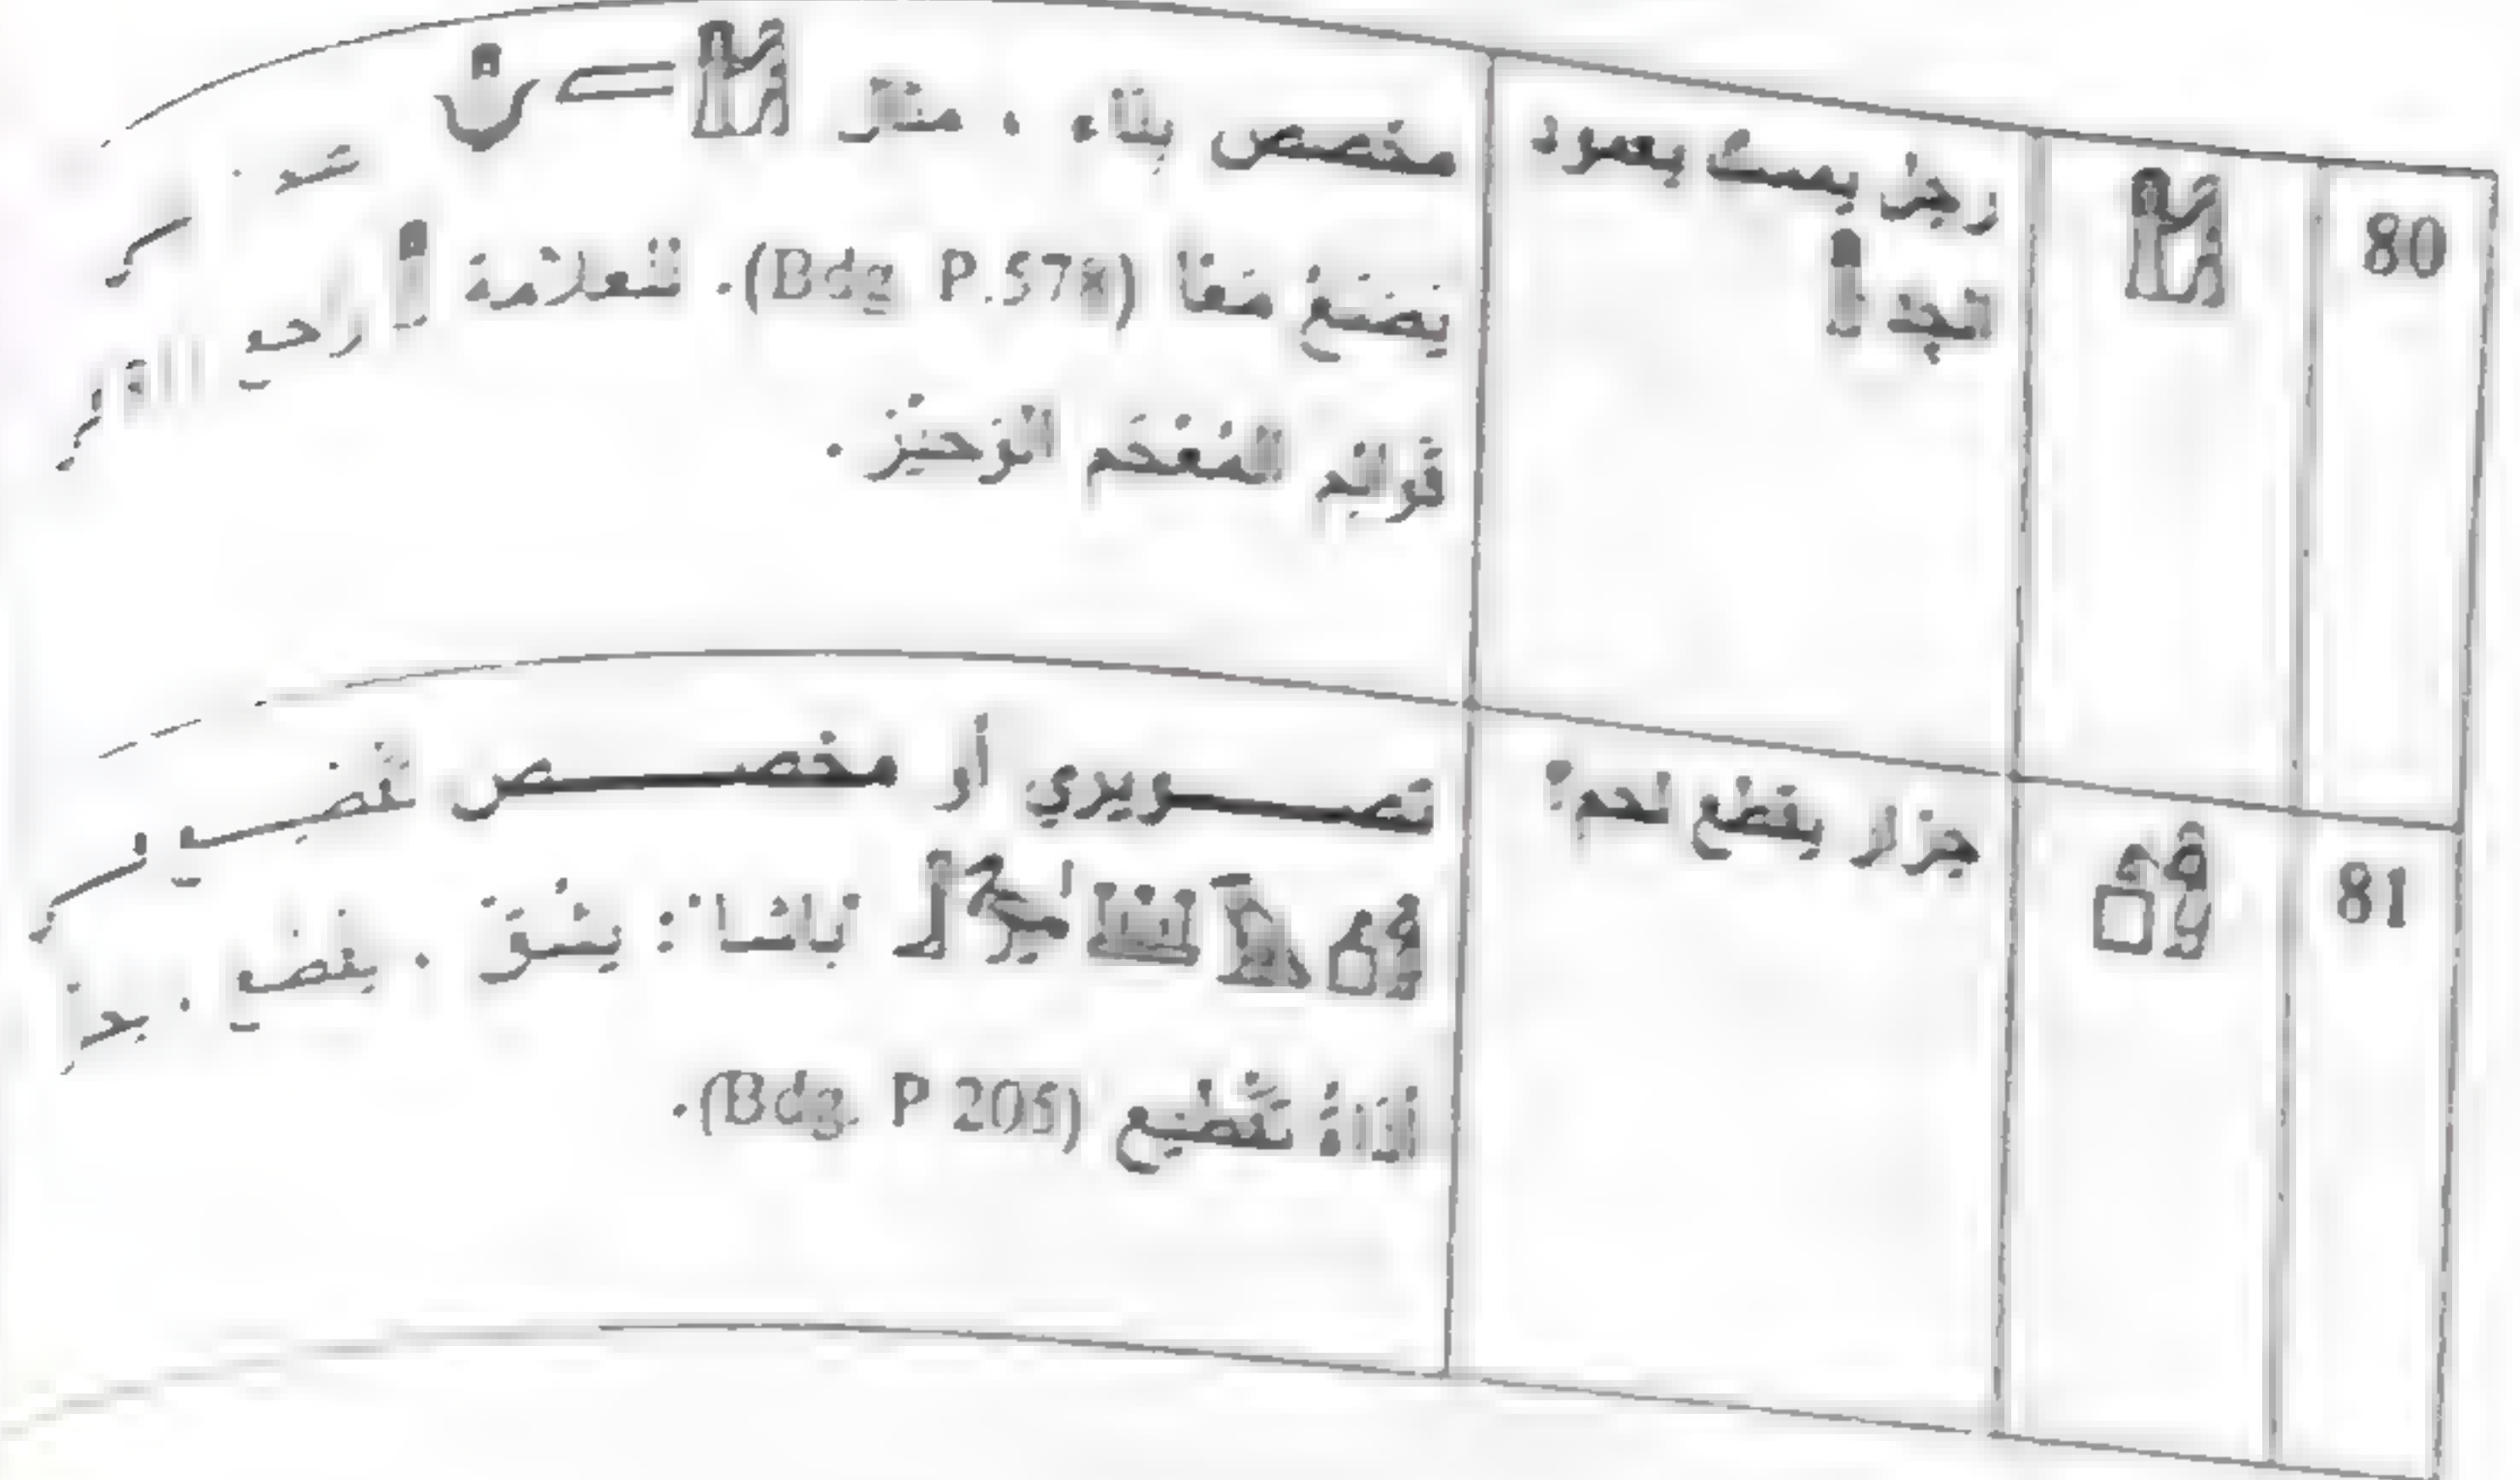 80
رجل يمسك بعمود
الجد
مخصص بناء ، مثل
يصنع معًا (Bdg P.578). للعلامة راجع
قوائم المعجم الوجيز .
81
جزار يقطع لحم؟
تصويري أو مخصص
باشا : يشق ، يقطع ،
أداة تقطيع (Bdg. P 205).